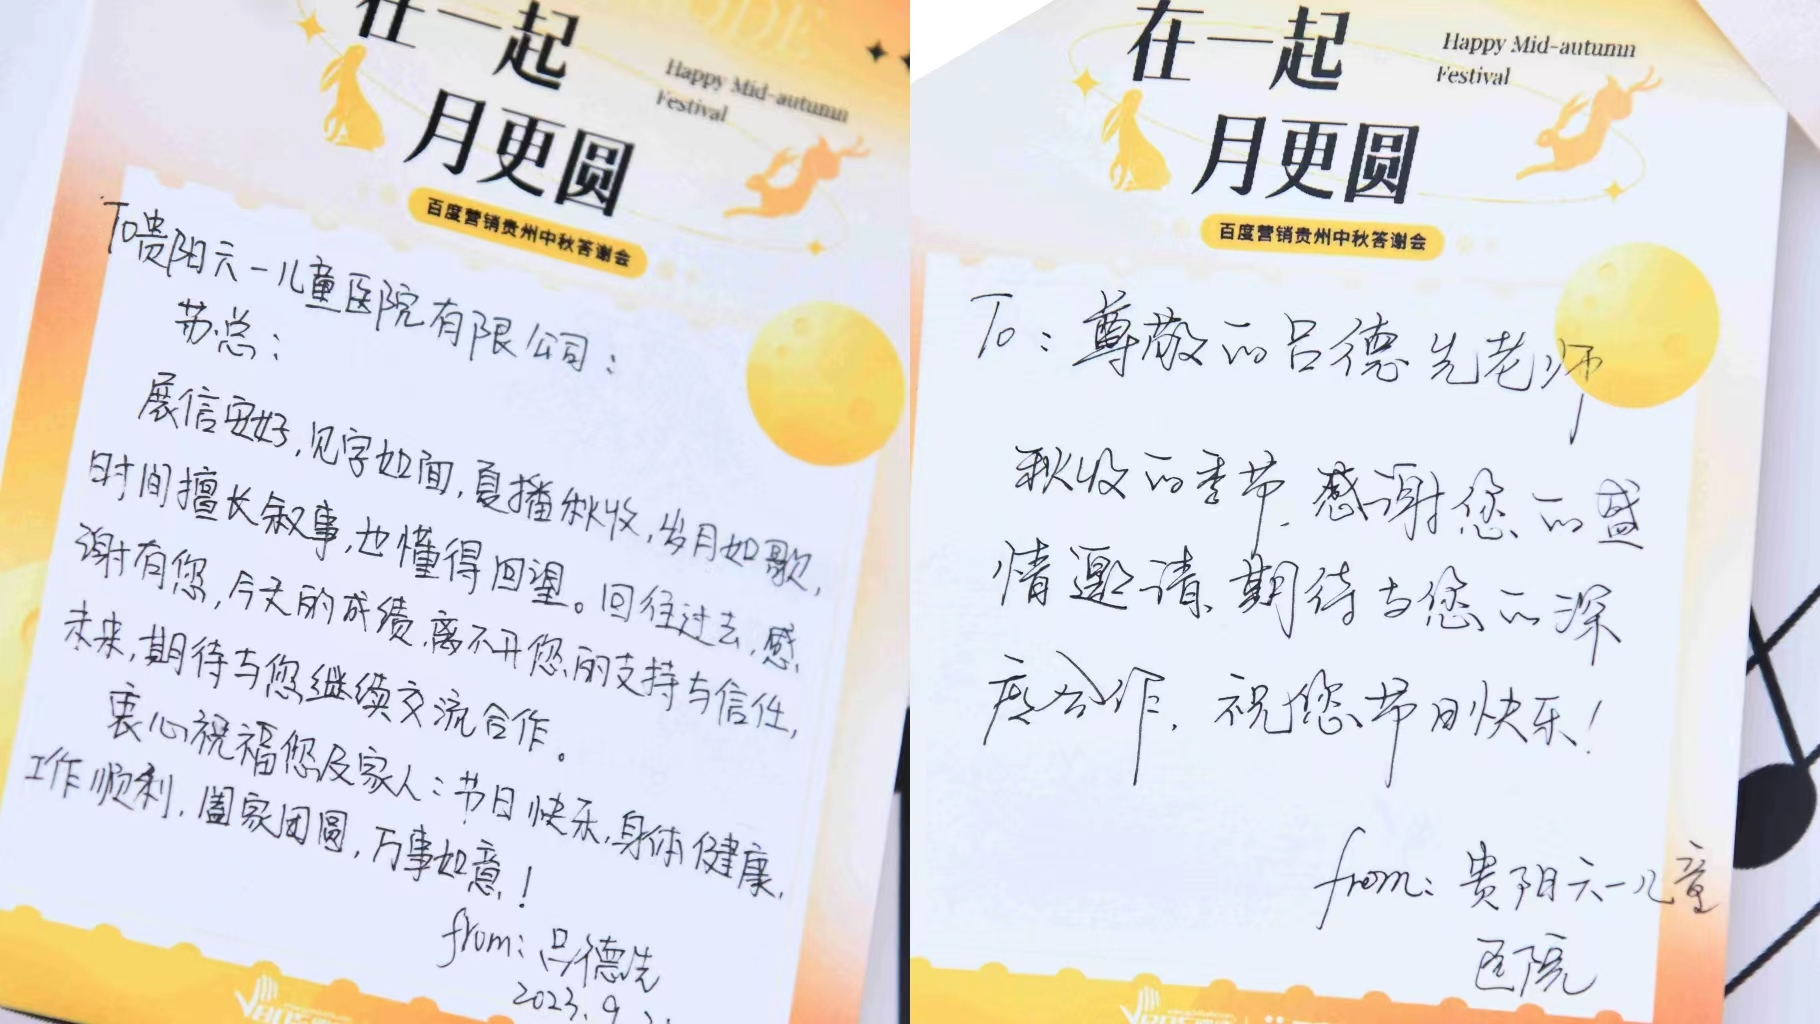 在一起
月更圆
Happy Mid-autumn
Festival
百度营销贵州中秋答谢会
To贵阳六一儿童医院有限公司：
苏总：
展信安好，见字如面，夏播秋收，岁月如歌，
时间擅长叙事，也懂得回望。回往过去，感
谢有您，今天的成绩，离不开您的支持与信任，
未来，期待与您继续交流合作。
衷心祝福您及家人：节日快乐，身体健康，
工作顺利，阖家团圆，万事如意！
from：吕德先
2023.9.
在一起
月更圆
Happy Mid-autumn
Festival
百度营销贵州中秋答谢会
To：尊敬的吕德先老师
秋收的季节，感谢您的盛
情邀请，期待与您的深
度合作，祝您节日快乐！
from：贵阳六一儿童
医院